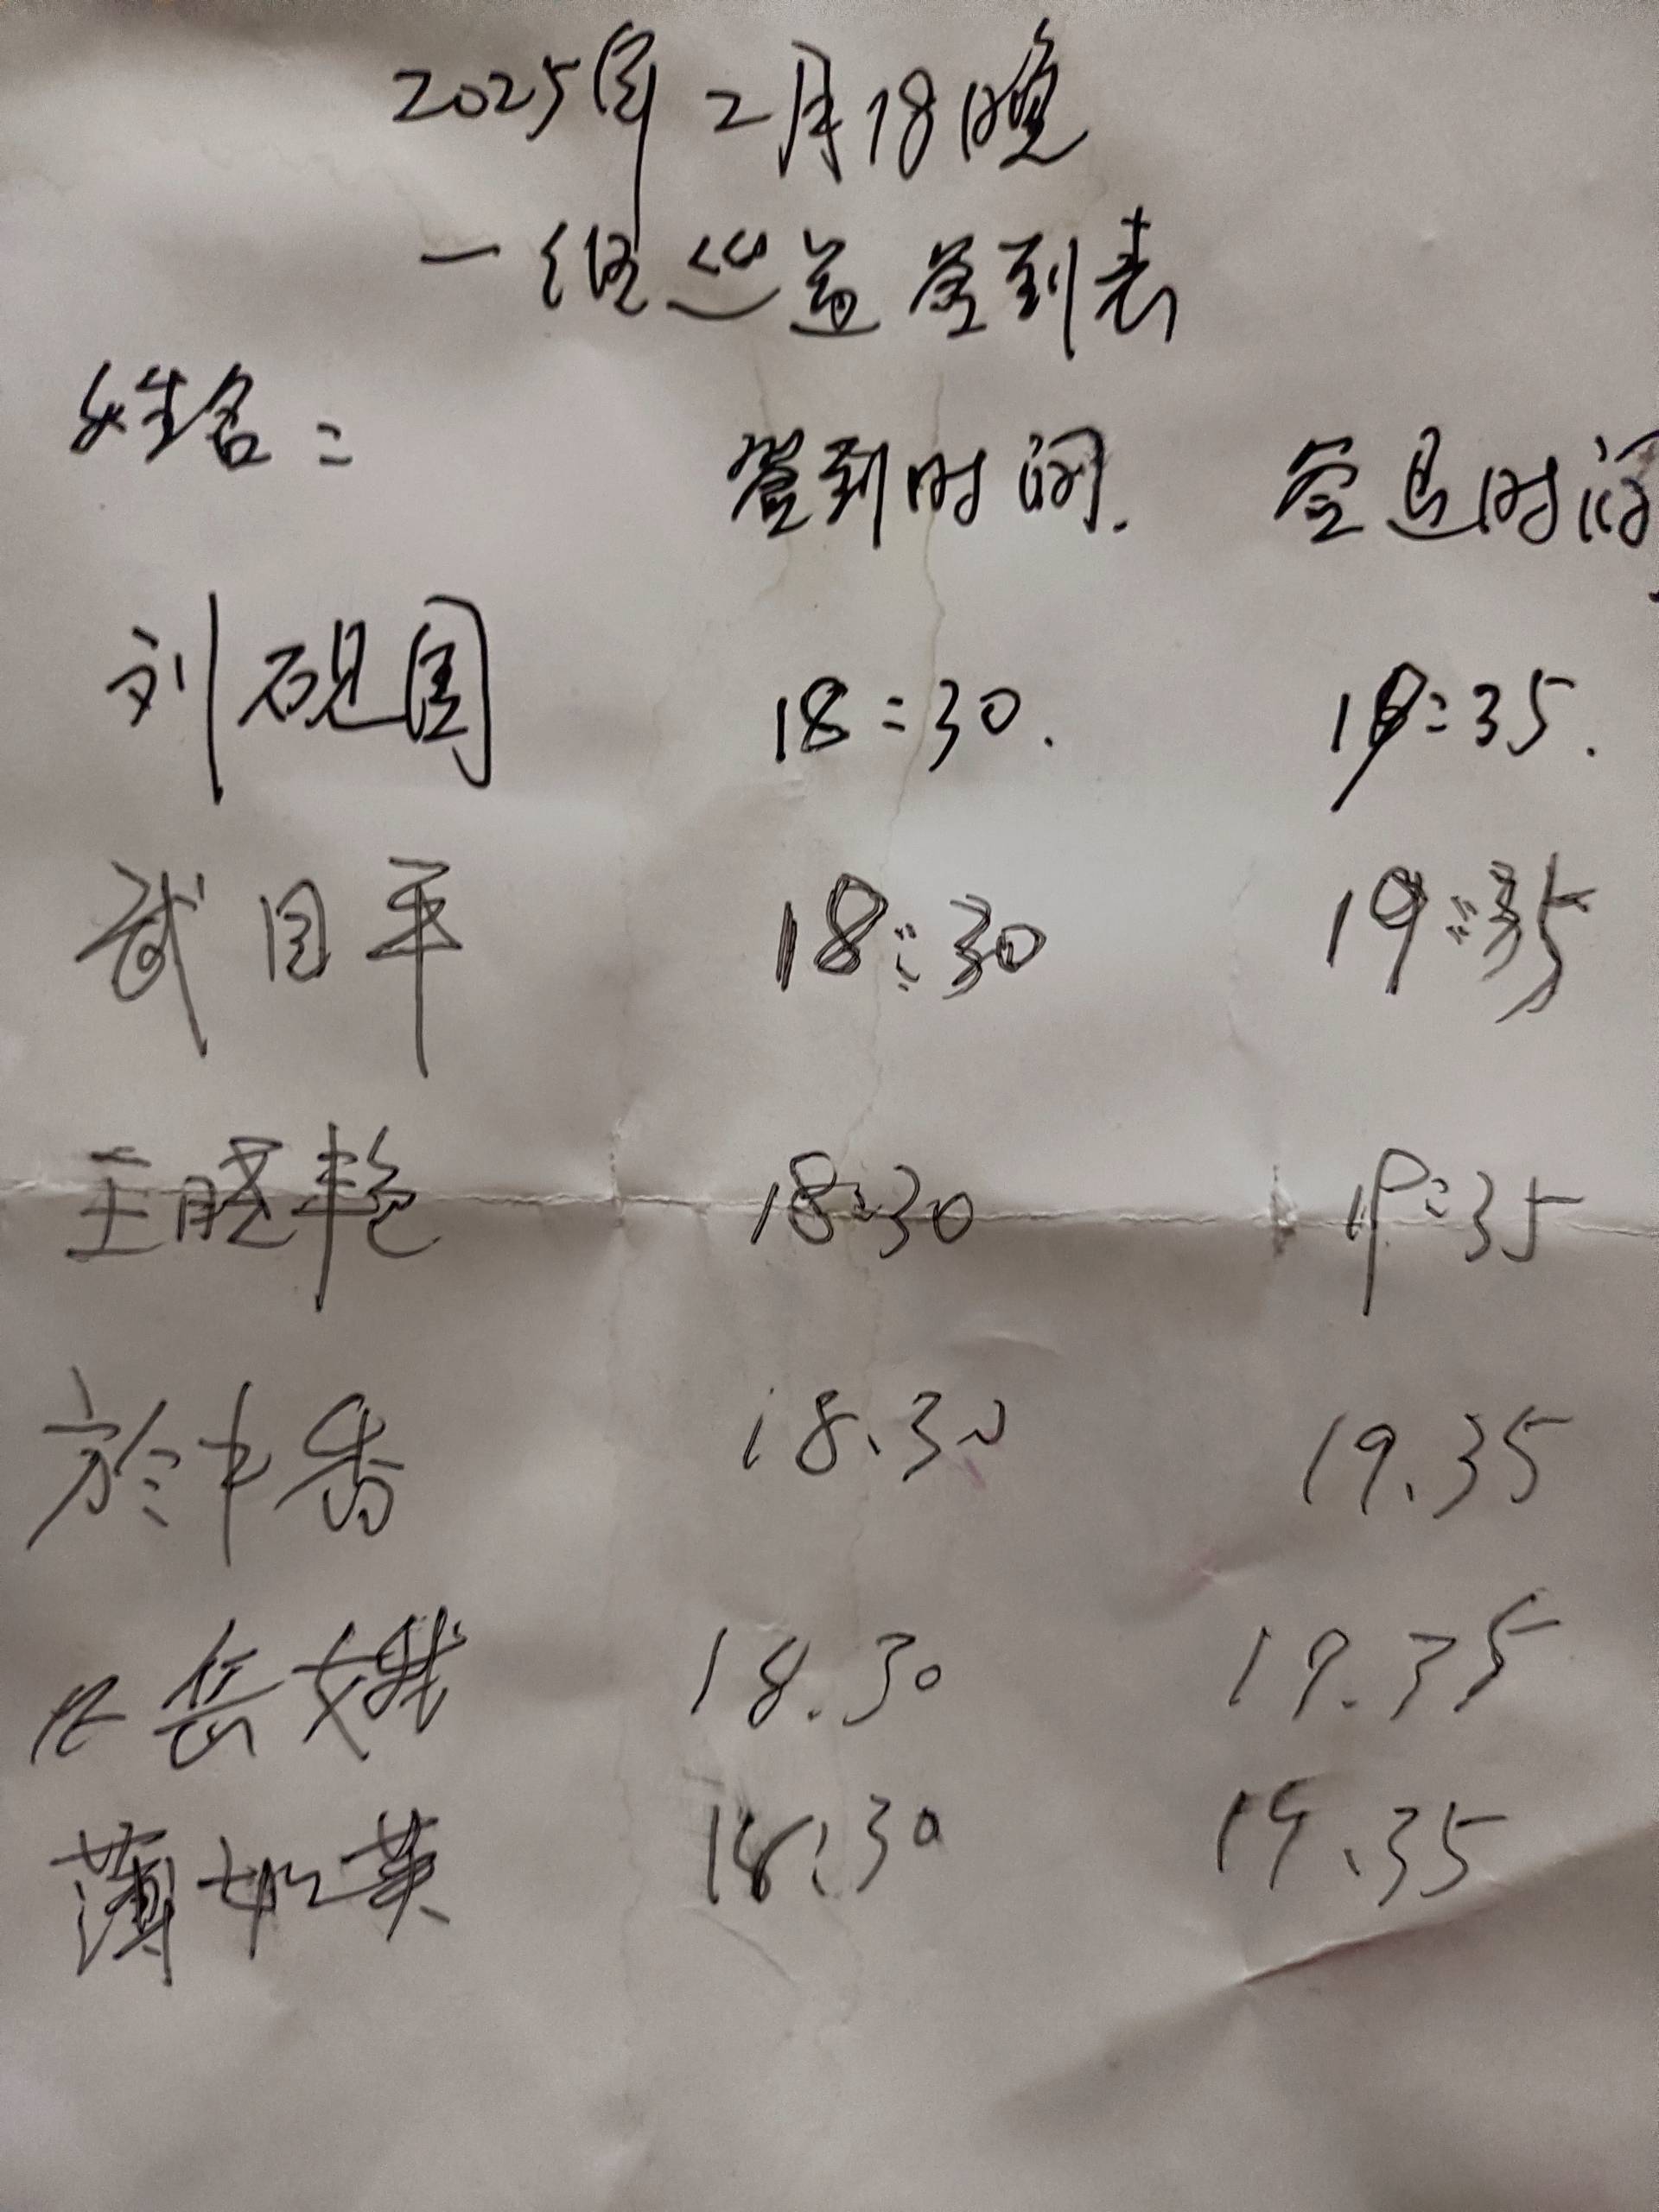 2025年二月18晚
一组巡逻签到表
姓名： 签到时间. 签退时间
刘砚国 18:30. 19:35.
武国平 18:30 19:35
王晓艳 18:30 19:35
於中香 18.30 19.35
岳娥 18.30 19.35
薄如英 18:30 19.35